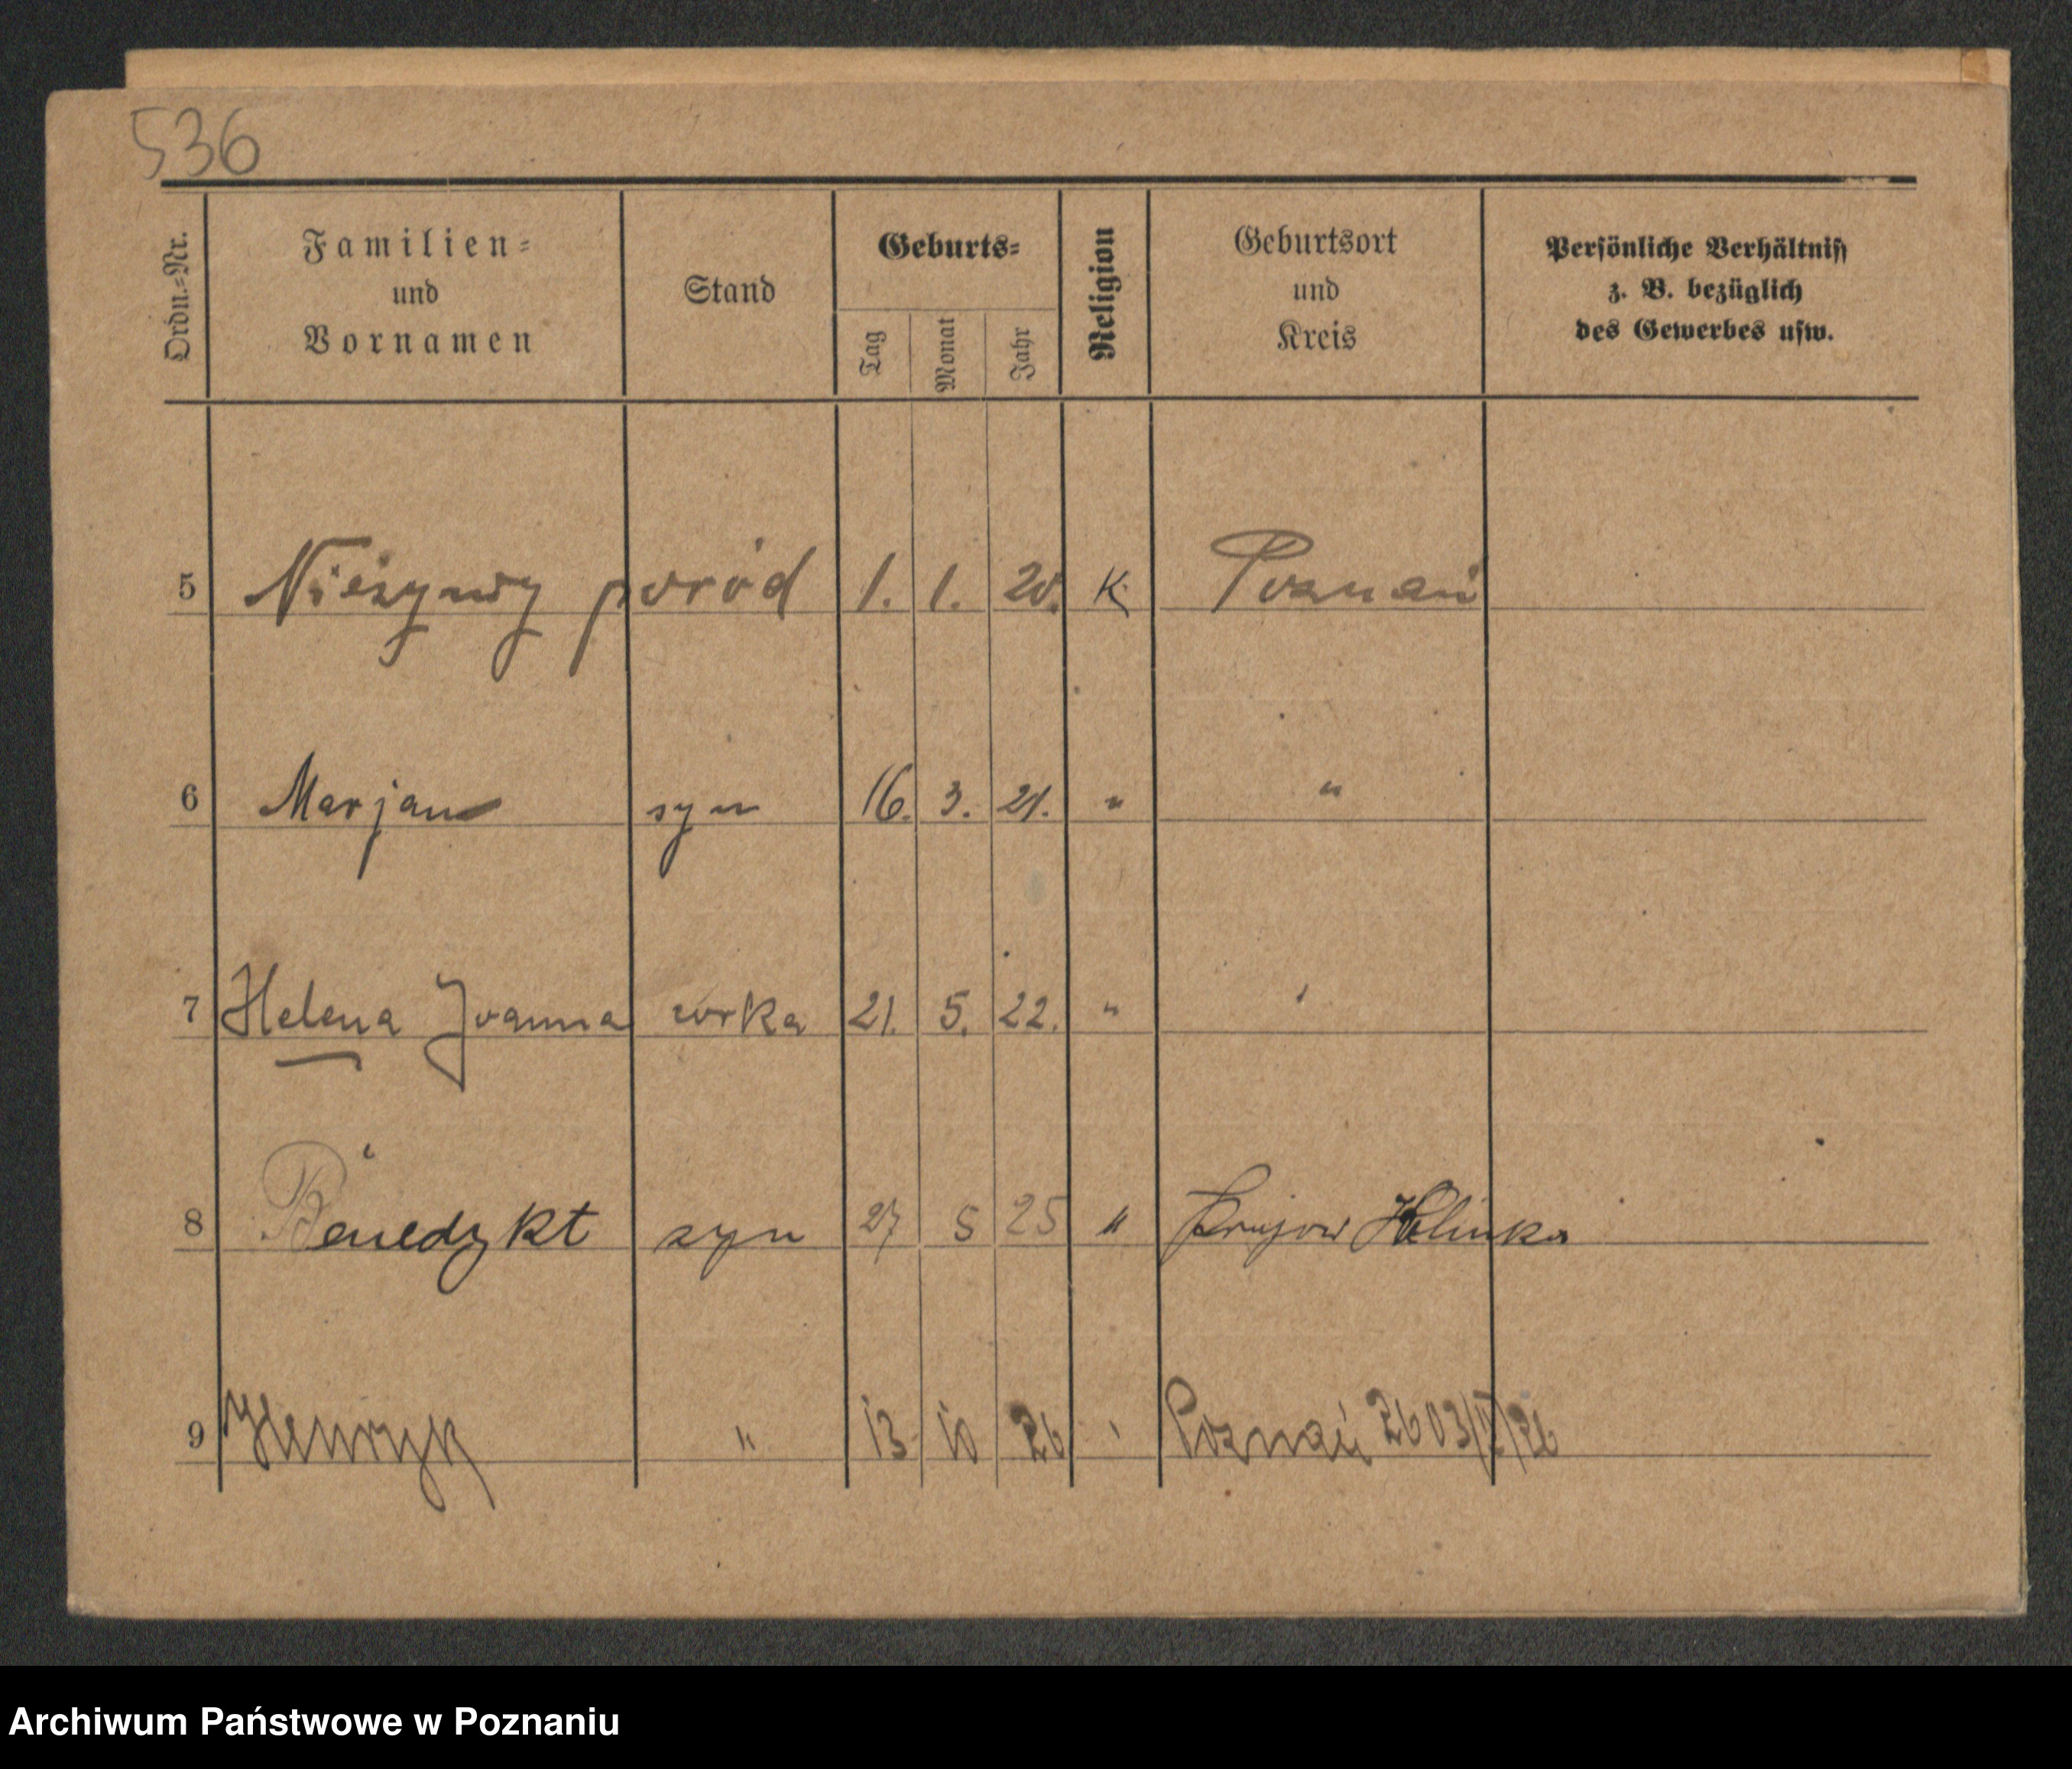 536
Ordn.-Nr.
Familien-
und
Vornamen
Stand
Geburts-
Tag
Monat
Jahr
Religion
Geburtsort
und
Kreis
Persönliche Verhältniss
z. B. bezüglich
des Gewerbes usw.
5 Nieżywy poród 1. 1. 20. K. Poznań
6 Marjan syn 16. 3. 21. " "
7 Helena Joanna córka 21. 5. 22. " "
8 Benedykt syn 27 5 25 "
9 Henryk " 13 10 26 " Poznań 2603/IV/26
Archiwum Państwowe w Poznaniu